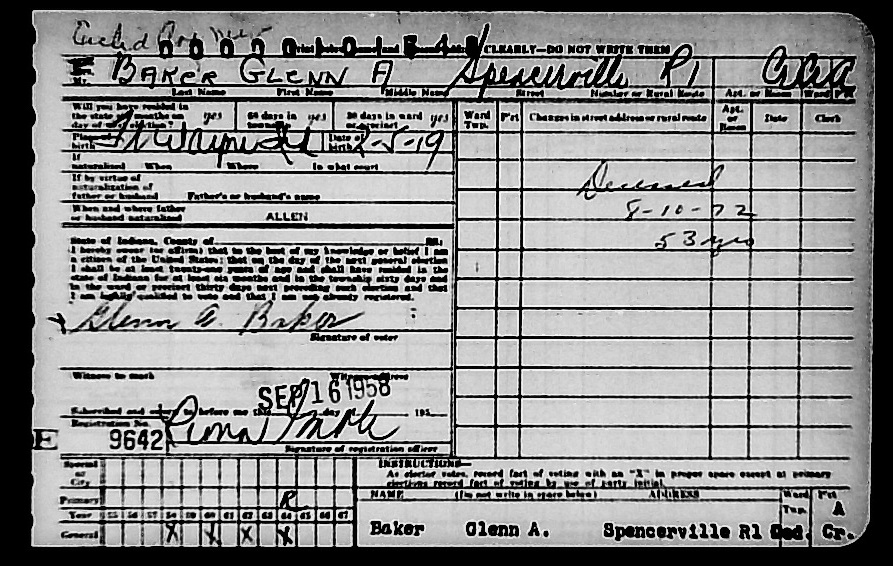 CLEARLY—DO NOT WRITE THEM
BAKER GLENN A Spencerville R1
Last Name First Name Middle Name Street Number or Rural Route Apt. or Room Ward P'ct
Will you have resided in the state 6 months on day of election? yes 60 days in township yes 30 days in ward or precinct yes
Ward Twp. P'ct Changes in street address or rural route Apt. or Room Date Clerk
Place of birth Ft Wayne Ind Date of birth 2-5-19
If naturalized When Where In what court
If by virtue of naturalization of father or husband Father's or husband's name
Deceased
8-10-72
53 yrs
When and where father or husband naturalized ALLEN
State of Indiana, County of SS:
I hereby swear (or affirm) that to the best of my knowledge or belief I am
a citizen of the United States; that on the day of the next general election
I shall be at least twenty-one years of age and shall have resided in the
state of Indiana for at least six months and in the township sixty days and
in the ward or precinct thirty days next preceding such election and that
I am legally qualified to vote and that I am now already registered.
x Glenn A. Baker
Signature of voter
Witness to mark Witness address
SEP 16 1958
Subscribed and sworn to before me this day of 195
Registration No.
E 9642
Signature of registration officer
Special or City
Primary R
Year 55 56 57 58 59 60 61 62 63 64 65 66 67
General X X X X
INSTRUCTIONS—
As elector votes, record fact of voting with an "X" in proper space except at primary
elections record fact of voting by use of party initial.
NAME (Do not write in space below) ADDRESS Ward Twp. P'ct
A
Baker Glenn A. Spencerville R1 Ced. Cr.